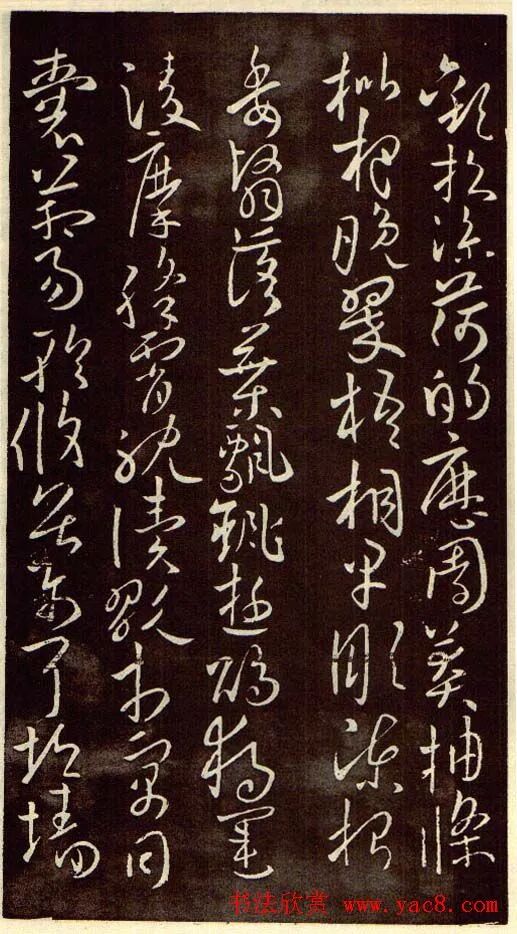 歡招渠荷的歷園莽抽條
枇杷晚翠梧桐早彫陳根
委翳落葉飄颻遊鵾獨運
凌摩絳霄耽讀翫市寓目
囊箱易輶攸畏屬耳垣牆
书法欣赏 www.yac8.com